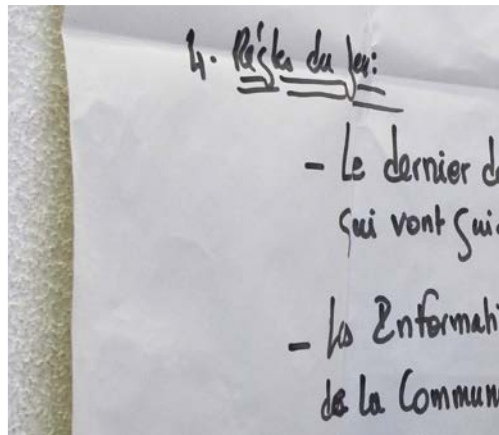 4. Règles du jeu:
- Le dernier de
qui vont gui
- Les Informati
de la Commun